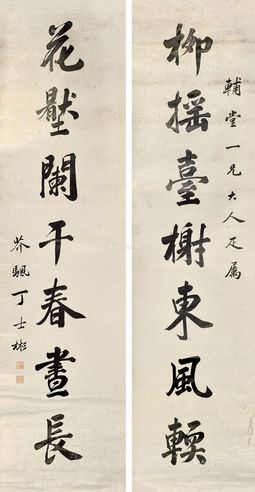 輔堂一兄大人足屬
柳搖臺榭東風輭
花壓闌干春晝長
芥颿丁士彬